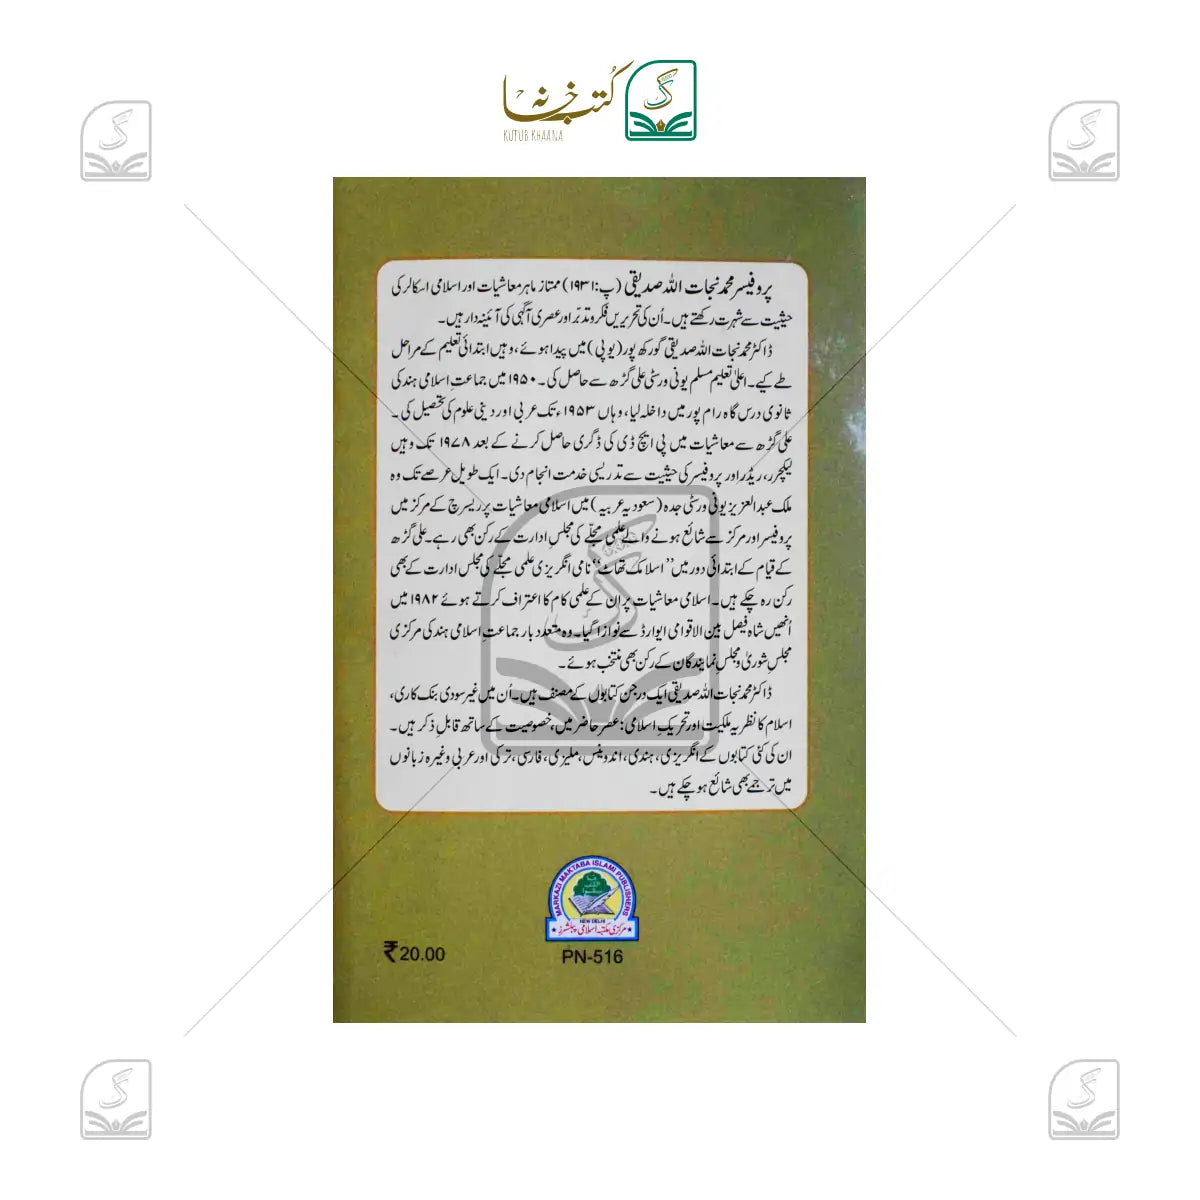 کتب خانہ
KUTUB KHAANA
پروفیسر محمد نجات اللہ صدیقی (پ:۱۹۳۱) ممتاز ماہر معاشیات اور اسلامی اسکالر کی
حیثیت سے شہرت رکھتے ہیں۔ اُن کی تحریریں فکر و تدبّر اور عصری آگہی کی آئینہ دار ہیں۔
ڈاکٹر محمد نجات اللہ صدیقی گورکھ پور (یوپی) میں پیدا ہوئے، وہیں ابتدائی تعلیم کے مراحل
طے کیے۔ اعلیٰ تعلیم مسلم یونی ورسٹی علی گڑھ سے حاصل کی۔ ۱۹۵۰ میں جماعتِ اسلامی ہند کی
ثانوی درس گاہ رام پور میں داخلہ لیا، وہاں ۱۹۵۳ء تک عربی اور دینی علوم کی تحصیل کی۔
علی گڑھ سے معاشیات میں پی ایچ ڈی کی ڈگری حاصل کرنے کے بعد ۱۹۷۸ تک وہیں
لیکچرر، ریڈر اور پروفیسر کی حیثیت سے تدریسی خدمت انجام دی۔ ایک طویل عرصے تک وہ
ملک عبدالعزیز یونی ورسٹی جدہ (سعودیہ عربیہ) میں اسلامی معاشیات پر ریسرچ کے مرکز میں
پروفیسر اور مرکز سے شائع ہونے والے علمی مجلّے کی مجلسِ ادارت کے رکن بھی رہے۔ علی گڑھ
کے قیام کے ابتدائی دور میں ”اسلامک تھاٹ“ نامی انگریزی علمی مجلّے کی مجلس ادارت کے بھی
رکن رہ چکے ہیں۔ اسلامی معاشیات پر ان کے علمی کام کا اعتراف کرتے ہوئے ۱۹۸۲ میں
اُنھیں شاہ فیصل بین الاقوامی ایوارڈ سے نوازا گیا۔ وہ متعدد بار جماعتِ اسلامی ہند کی مرکزی
مجلس شوریٰ و مجلسِ نمایندگان کے رکن بھی منتخب ہوئے۔
ڈاکٹر محمد نجات اللہ صدیقی ایک درجن کتابوں کے مصنف ہیں۔ اُن میں غیر سودی بنک کاری،
اسلام کا نظریہ ملکیت اور تحریکِ اسلامی: عصر حاضر میں، خصوصیت کے ساتھ قابلِ ذکر ہیں۔
ان کی کئی کتابوں کے انگریزی، ہندی، انڈونیشی، ملیزی، فارسی، ترکی اور عربی وغیرہ زبانوں
میں ترجمے بھی شائع ہو چکے ہیں۔
MARKAZI MAKTABA ISLAMI PUBLISHERS
NEW DELHI
مرکزی مکتبہ اسلامی پبلشرز
₹20.00
PN-516